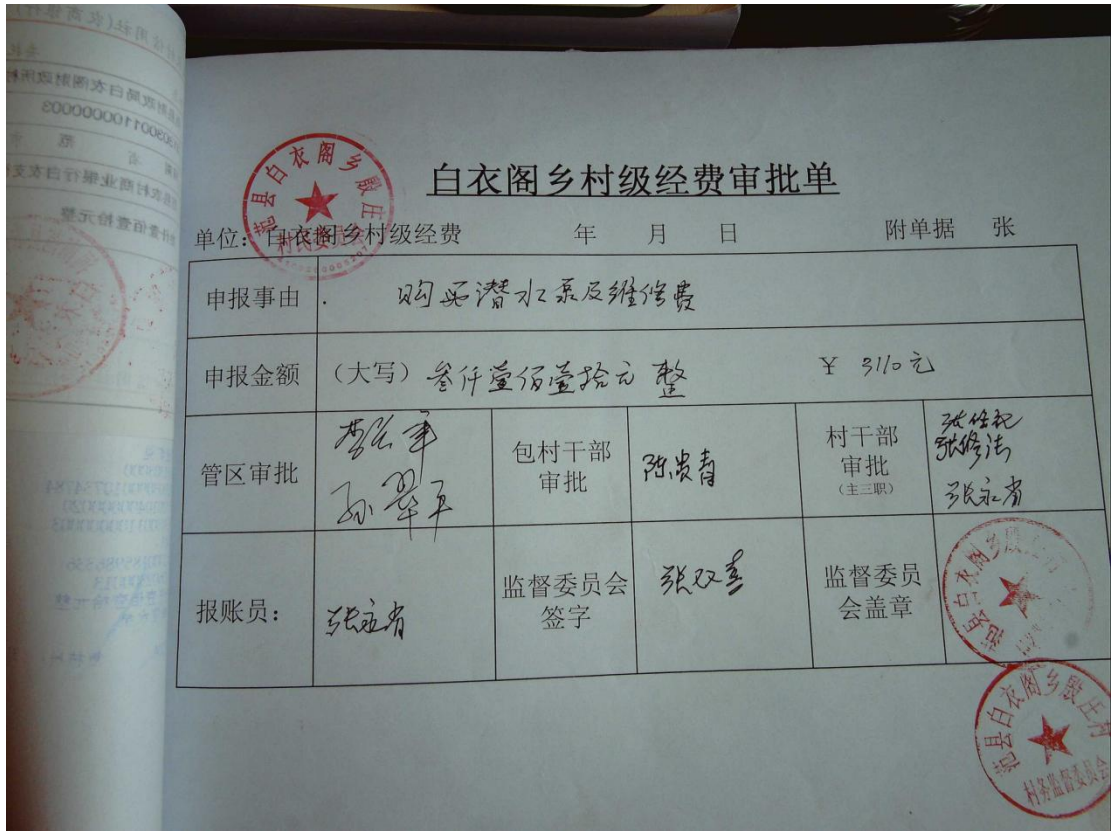 白衣阁乡村级经费审批单
单位：白衣阁乡村级经费 年 月 日 附单据 张
申报事由 购买潜水泵及维修费
申报金额 （大写）叁仟壹佰壹拾元整 ￥ 3110元
管区审批
孙翠平
包村干部
审批
陈贵春
村干部
审批
（主三职）
张修法
张永省
报账员：
张永省
监督委员会
签字
张双喜
监督委员
会盖章
范县白衣阁乡殷庄
村民委员会
范县白衣阁乡殷庄
范县白衣阁乡殷庄村
村务监督委员会